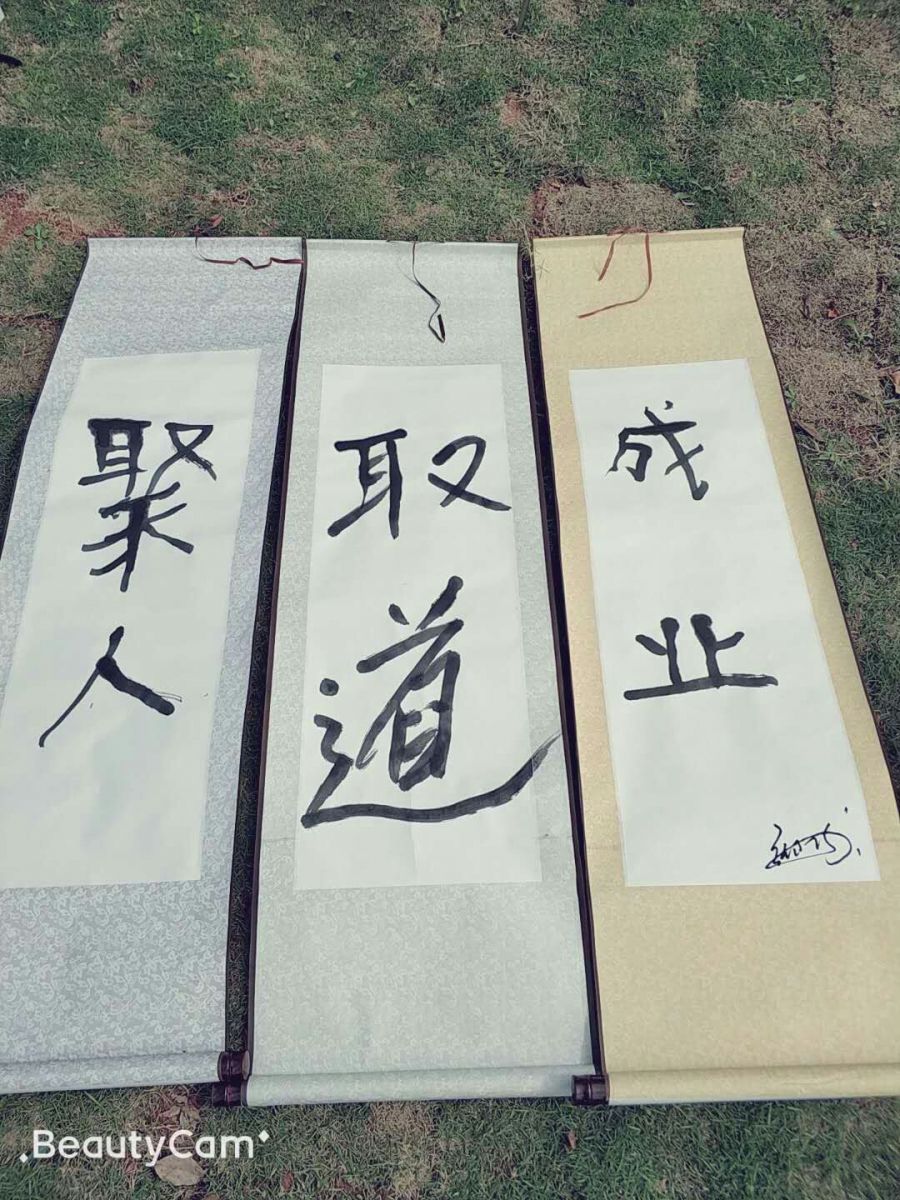 聚人
取道
成业
BeautyCam